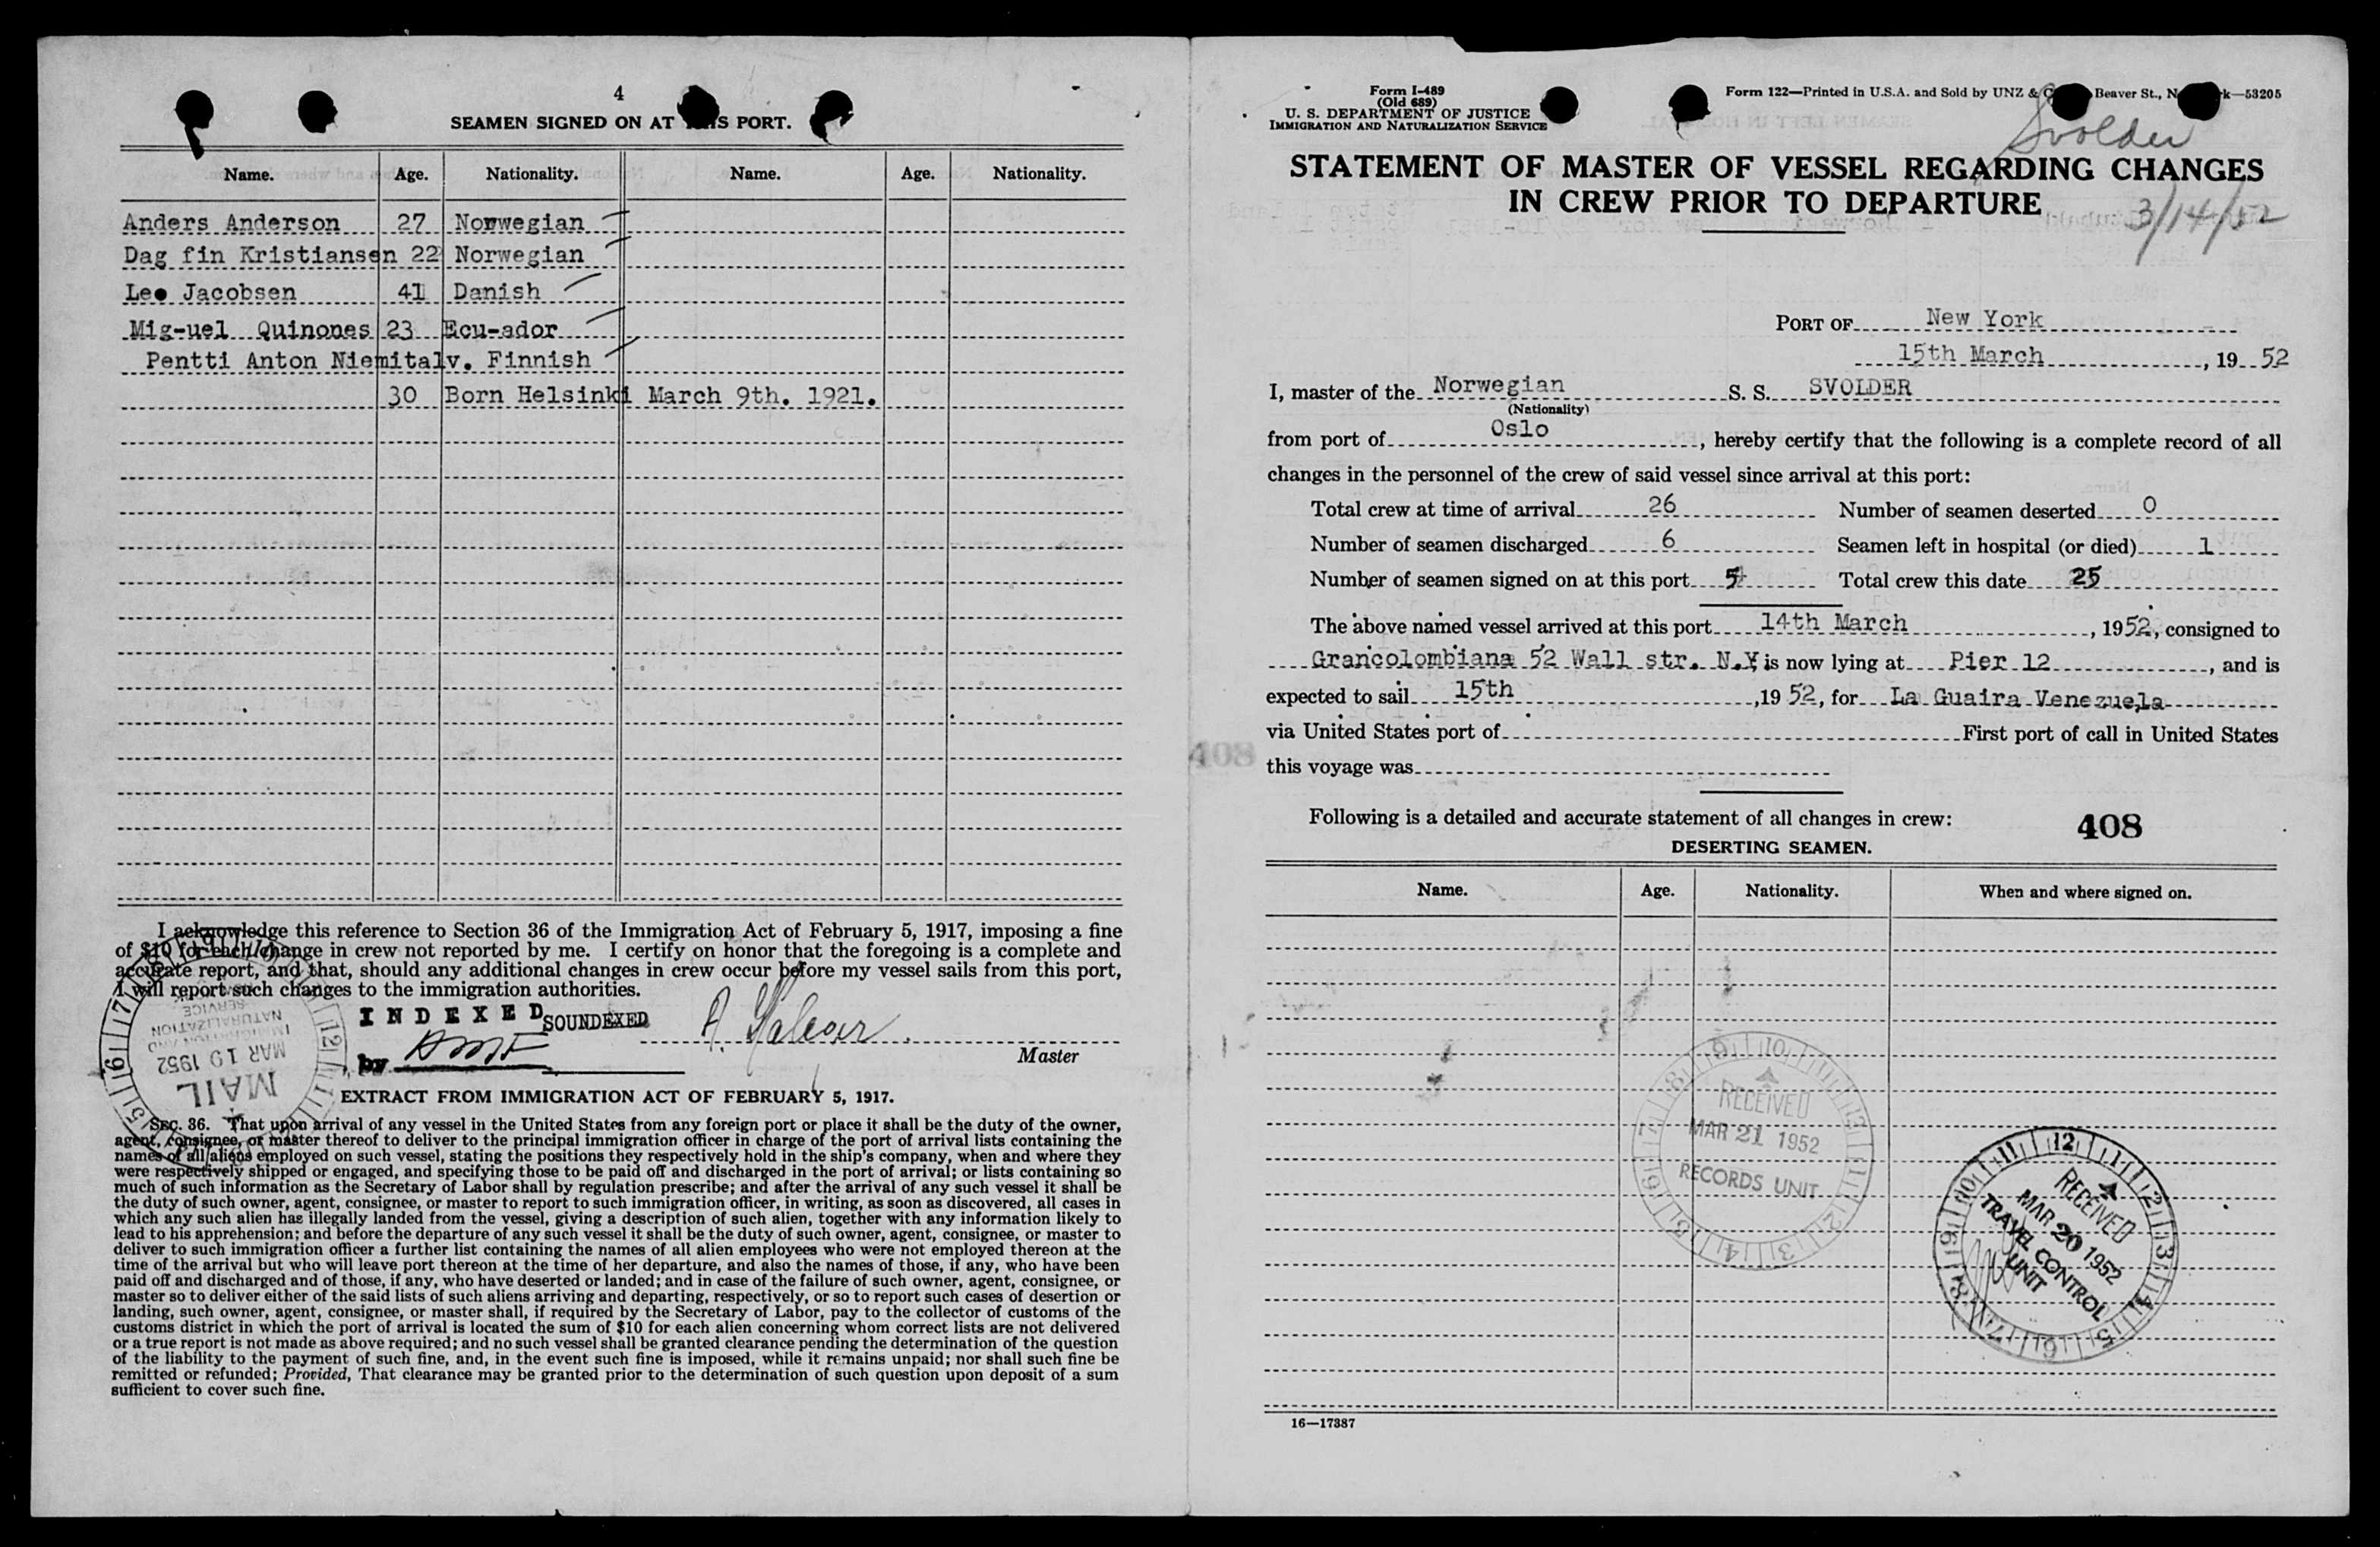 4
SEAMEN SIGNED ON AT THIS PORT.
Name. Age. Nationality. Name. Age. Nationality.
Anders Anderson 27 Norwegian
Dag fin Kristiansen 22 Norwegian
Leo Jacobsen 41 Danish
Mig-uel Quinones 23 Ecu-ador
Pentti Anton Niemitalv. Finnish
30 Born Helsinki March 9th. 1921.
I acknowledge this reference to Section 36 of the Immigration Act of February 5, 1917, imposing a fine
of $10 for each change in crew not reported by me. I certify on honor that the foregoing is a complete and
accurate report, and that, should any additional changes in crew occur before my vessel sails from this port,
I will report such changes to the immigration authorities.
INDEXED SOUNDEXED
by
Master
IMMIGRATION AND
NATURALIZATION
SERVICE
MAR 19 1952
MAIL
EXTRACT FROM IMMIGRATION ACT OF FEBRUARY 5, 1917.
SEC. 36. That upon arrival of any vessel in the United States from any foreign port or place it shall be the duty of the owner,
agent, consignee, or master thereof to deliver to the principal immigration officer in charge of the port of arrival lists containing the
names of all aliens employed on such vessel, stating the positions they respectively hold in the ship's company, when and where they
were respectively shipped or engaged, and specifying those to be paid off and discharged in the port of arrival; or lists containing so
much of such information as the Secretary of Labor shall by regulation prescribe; and after the arrival of any such vessel it shall be
the duty of such owner, agent, consignee, or master to report to such immigration officer, in writing, as soon as discovered, all cases in
which any such alien has illegally landed from the vessel, giving a description of such alien, together with any information likely to
lead to his apprehension; and before the departure of any such vessel it shall be the duty of such owner, agent, consignee, or master to
deliver to such immigration officer a further list containing the names of all alien employees who were not employed thereon at the
time of the arrival but who will leave port thereon at the time of her departure, and also the names of those, if any, who have been
paid off and discharged and of those, if any, who have deserted or landed; and in case of the failure of such owner, agent, consignee, or
master so to deliver either of the said lists of such aliens arriving and departing, respectively, or so to report such cases of desertion or
landing, such owner, agent, consignee, or master shall, if required by the Secretary of Labor, pay to the collector of customs of the
customs district in which the port of arrival is located the sum of $10 for each alien concerning whom correct lists are not delivered
or a true report is not made as above required; and no such vessel shall be granted clearance pending the determination of the question
of the liability to the payment of such fine, and, in the event such fine is imposed, while it remains unpaid; nor shall such fine be
remitted or refunded; Provided, That clearance may be granted prior to the determination of such question upon deposit of a sum
sufficient to cover such fine.
Form I-489
(Old 689)
U. S. DEPARTMENT OF JUSTICE
IMMIGRATION AND NATURALIZATION SERVICE
Form 122—Printed in U.S.A. and Sold by UNZ & Beaver St., 53205
Svolder
STATEMENT OF MASTER OF VESSEL REGARDING CHANGES
IN CREW PRIOR TO DEPARTURE
3/14/52
PORT OF New York
15th March, 19 52
I, master of the Norwegian S. S. SVOLDER
(Nationality)
from port of Oslo, hereby certify that the following is a complete record of all
changes in the personnel of the crew of said vessel since arrival at this port:
Total crew at time of arrival 26 Number of seamen deserted 0
Number of seamen discharged 6 Seamen left in hospital (or died) 1
Number of seamen signed on at this port 5 Total crew this date 25
The above named vessel arrived at this port 14th March, 1952, consigned to
Grancolombiana 52 Wall str. N.Y, is now lying at Pier 12, and is
expected to sail 15th, 19 52, for La Guaira Venezuela
via United States port of First port of call in United States
this voyage was
Following is a detailed and accurate statement of all changes in crew:
408
DESERTING SEAMEN.
Name. Age. Nationality. When and where signed on.
RECEIVED
MAR 21 1952
RECORDS UNIT
RECEIVED
MAR 20 1952
TRAVEL CONTROL
UNIT
16—17387